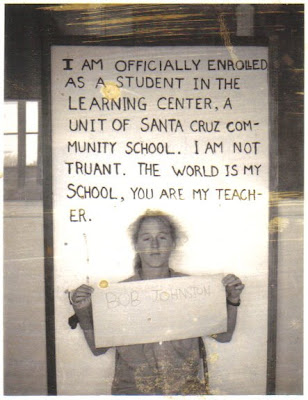 I AM OFFICIALLY ENROLLED
AS A STUDENT IN THE
LEARNING CENTER, A
UNIT OF SANTA CRUZ COM-
MUNITY SCHOOL. I AM NOT
TRUANT. THE WORLD IS MY
SCHOOL, YOU ARE MY TEACH-
ER.
BOB JOHNSTON